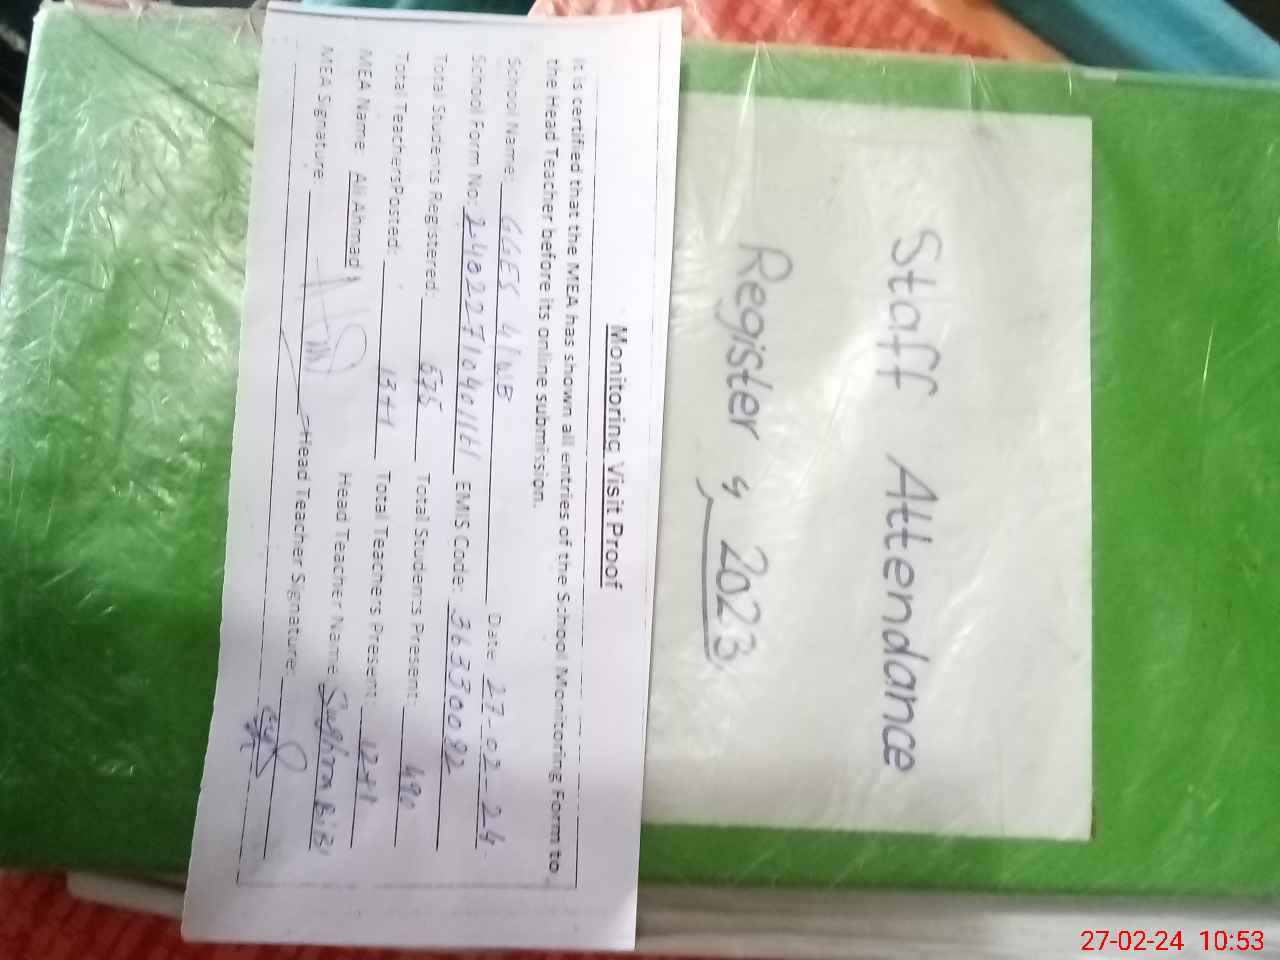 Staff Attendance
Register, 2023
Monitoring Visit Proof
It is certified that the MEA has shown all entries of the School Monitoring Form to
the Head Teacher before its online submission.
School Name: GGES 4/WB Date: 27-02-24
School Form No: EMIS Code: 36330092
Total Students Registered: 675 Total Students Present: 490
Total TeachersPosted: 13+1 Total Teachers Present: 12+1
MEA Name: Ali Ahmad Head Teacher Name: Sughra BiBi
MEA Signature: Head Teacher Signature:
27-02-24 10:53